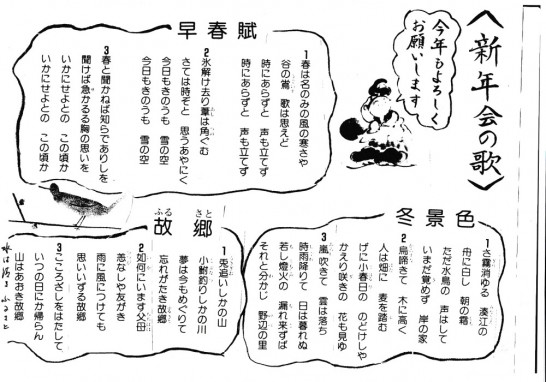 〈新年会の歌〉
今年もよろしく
お願いします
早春賦
1 春は名のみの風の寒さや
谷の鶯 歌は思えど
時にあらずと 声も立てず
時にあらずと 声も立てず
2 氷解け去り葦は角ぐむ
さては時ぞと 思うあやにく
今日もきのうも 雪の空
今日もきのうも 雪の空
3 春と聞かねば知らでありしを
聞けば急かるる胸の思いを
いかにせよとの この頃か
いかにせよとの この頃か
冬景色
1 さ霧消ゆる 湊江の
舟に白し 朝の霜
ただ水鳥の 声はして
いまだ覚めず 岸の家
2 烏啼きて 木に高く
人は畑に 麦を踏む
げに小春日の のどけしや
かえり咲きの 花も見ゆ
3 嵐吹きて 雲は落ち
時雨降りて 日は暮れぬ
若し燈火の 漏れ来ずば
それと分かじ 野辺の里
故郷
ふる さと
1 兎追いしかの山
小鮒釣りしかの川
夢は今もめぐりて
忘れがたき故郷
2 如何にいます父母
恙なしや友がき
雨に風につけても
思いいずる故郷
3 こころざしをはたして
いつの日にか帰らん
山はあおき故郷
水は清きふるさと